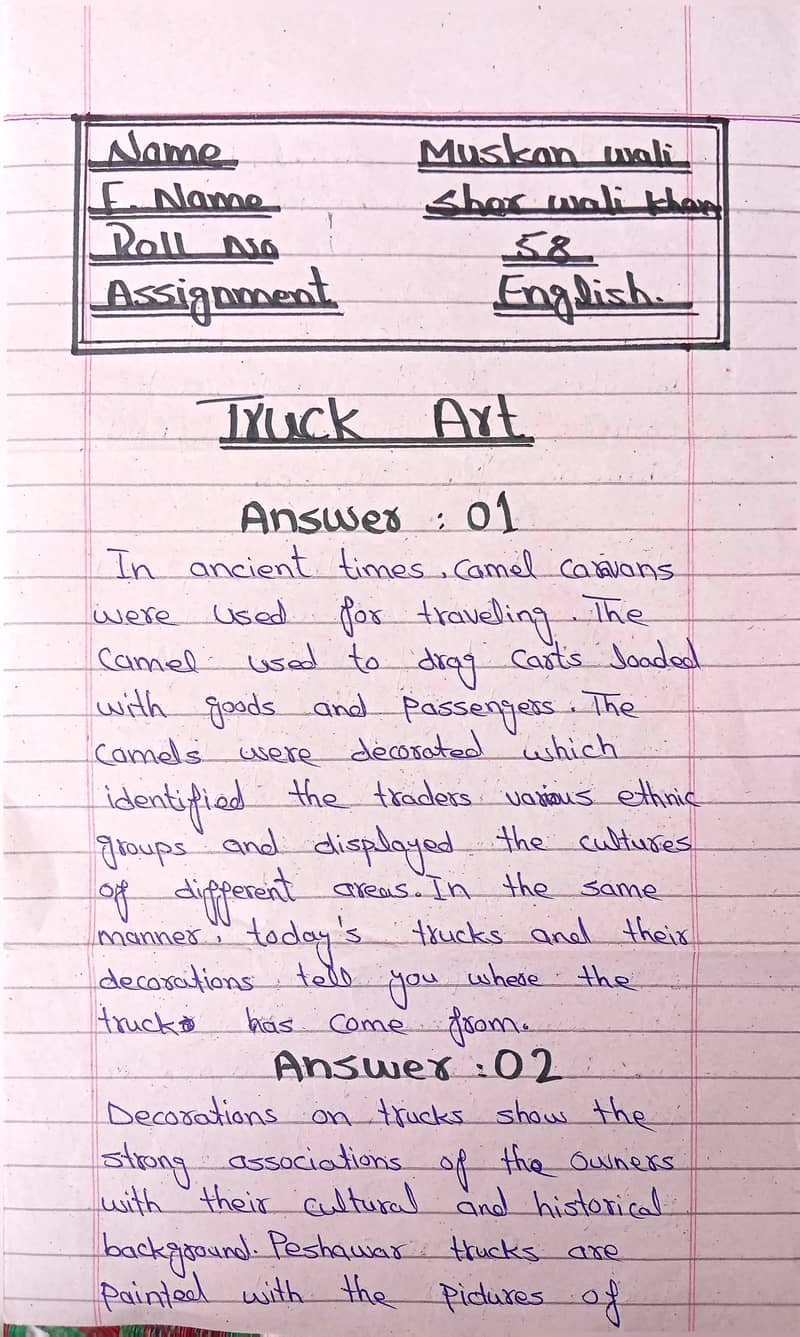 Name Muskan wali
F. Name Sher wali khan
Roll No 58
Assignment English.
Truck Art
Answer : 01
In ancient times, camel caravans
were used for traveling. The
camel used to drag carts loaded
with goods and passengers. The
camels were decorated which
identified the traders various ethnic
groups and displayed the cultures
of different areas. In the same
manner, today's trucks and their
decorations tell you where the
truck has come from.
Answer : 02
Decorations on trucks show the
strong associations of the owners
with their cultural and historical
background. Peshawar trucks are
painted with the pictures of